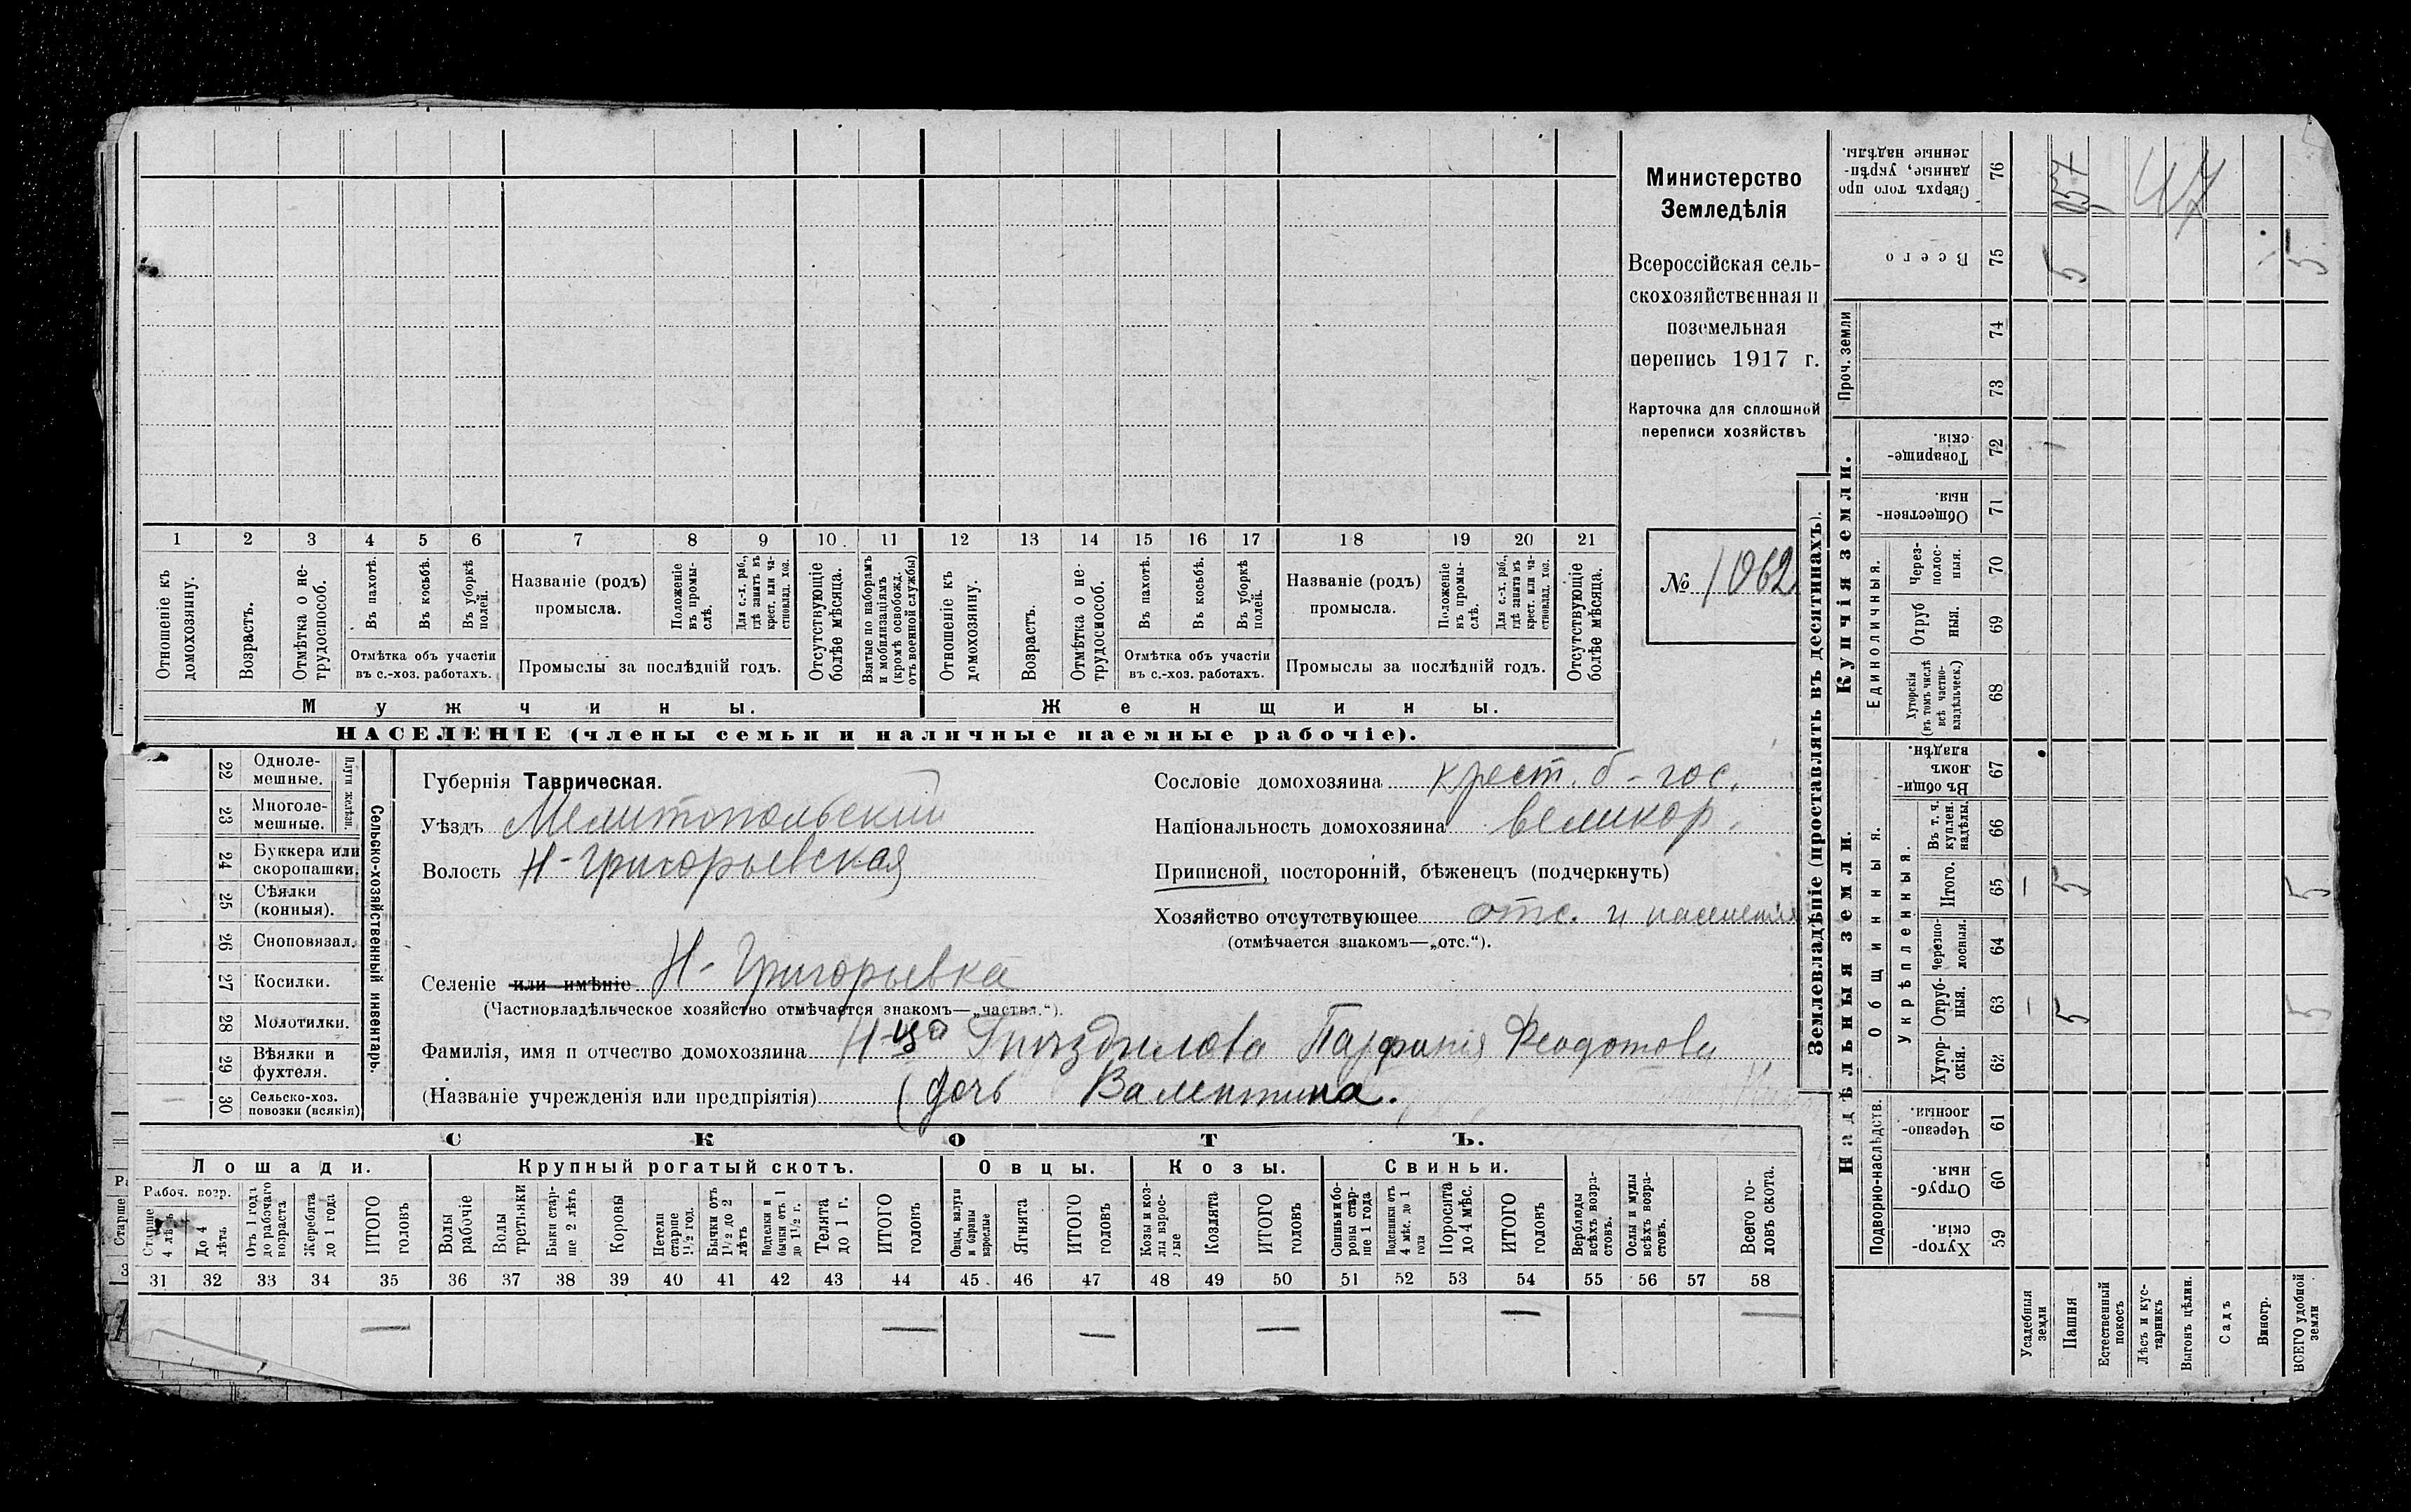 Министерство
Земледѣлія
Всероссійская сель-
скохозяйственная и
поземельная
перепись 1917 г.
Карточка для сплошной
переписи хозяйствъ
№ 1062
1 2 3 4 5 6 7 8 9 10 11 12 13 14 15 16 17 18 19 20 21
Отношеніе къ домохозяину.
Возрастъ.
Отмѣтка о не-трудоспособ.
Въ пахотѣ.
Въ косьбѣ.
Въ уборкѣ полей.
Отмѣтка объ участіи
въ с.-хоз. работахъ.
Названіе (родъ)
промысла.
Положеніе въ промы-слѣ.
Для с.-х. раб., гдѣ занятъ въ крест. или ча-стновлад. хоз.
Промыслы за послѣдній годъ.
Отсутствующіе болѣе мѣсяца.
Взятые по наборамъ и мобилизаціямъ (кромѣ освобожд. отъ военной службы)
Отношеніе къ домохозяину.
Возрастъ.
Отмѣтка о не-трудоспособ.
Въ пахотѣ.
Въ косьбѣ.
Въ уборкѣ полей.
Отмѣтка объ участіи
въ с.-хоз. работахъ.
Названіе (родъ)
промысла.
Положеніе въ промы-слѣ.
Для с.-х. раб., гдѣ занята въ крест. или ча-стновлад. хоз.
Промыслы за послѣдній годъ.
Отсутствующіе болѣе мѣсяца.
Мужчины.
Женщины.
НАСЕЛЕНІЕ (члены семьи и наличные наемные рабочіе).
22 Одноле-мешные.
23 Многоле-мешные.
Плуги желѣзн.
24 Буккера или скоропашки.
25 Сѣялки (конныя).
26 Сноповязал.
27 Косилки.
28 Молотилки.
29 Вѣялки и фухтеля.
30 Сельско-хоз. повозки (всякія)
Сельско-хозяйственный инвентарь.
Губернія Таврическая.
Уѣздъ Мелитопольский
Волость Н-Григорьевская
Сословіе домохозяина крест. б-гос.
Національность домохозяина великор.
Приписной, посторонній, бѣженецъ (подчеркнуть)
Хозяйство отсутствующее отс. и население
(отмѣчается знакомъ—„отс.“).
Селеніе или имѣніе Н-Григорьевка
(Частновладѣльческое хозяйство отмѣчается знакомъ—„частвл.“).
Фамилія, имя и отчество домохозяина Н-ца Гнездилова Парфинія Феодотова
(Названіе учрежденія или предпріятія) (дочь Валентина.
СКОТЪ.
Лошади.
Крупный рогатый скотъ.
Овцы.
Козы.
Свиньи.
Рабоч. возр.
Старше 4 лѣтъ
До 4 лѣтъ
Отъ 1 года до рабочаго возраста
Жеребята до 1 года
ИТОГО головъ
Волы рабочіе
Волы третьяки
Быки стар-ше 2 лѣтъ
Коровы
Нетели старше 1½ год.
Бычки отъ 1½ до 2 лѣтъ
Подтелки и бычки отъ 1 до 1½ г.
Телята до 1 г.
ИТОГО головъ
Овцы, валухи и бараны взрослые
Ягнята
ИТОГО головъ
Козы и коз-лы взрос-лые
Козлята
ИТОГО головъ
Свиньи и бо-ровы стар-ше 1 года
Подсвинки отъ 4 мѣс. до 1 года
Поросята до 4 мѣс.
ИТОГО головъ
Верблюды всѣхъ возра-стовъ.
Ослы и мулы всѣхъ возра-стовъ.
Всего го-ловъ скота.
31 32 33 34 35 36 37 38 39 40 41 42 43 44 45 46 47 48 49 50 51 52 53 54 55 56 57 58
— — — — — —
Землевладѣніе (проставлять въ десятинахъ).
Сверхъ того про данные, укрѣп-ленные надѣлы. 76
Всего 75 5 5
Проч. земли 74 73
Купчія земли.
Товарище-скія. 72
Обществен-ныя. 71
Единоличныя.
Через-полос-ныя. 70
Отруб ныя. 69
Хуторскія (въ томъ числѣ всѣ частно-владѣльческ.) 68
Надѣльныя земли.
Общинныя.
Въ общи-номъ владѣн. 67
Укрѣпленныя.
Въ т. ч. куплен. надѣлы. 66
Итого. 65 — 5 5
Черезпо-лосныя. 64
Отруб-ныя. 63 — 5 5
Хутор-скія. 62
Подворно-наслѣдств.
Черезпо-лосныя. 61
Отруб-ныя. 60
Хутор-скія. 59
Усадебныя земли
Пашня
Естественный покосъ
Лѣсъ и кус-тарникъ
Выгонъ цѣлин.
Садъ
Виногр.
ВСЕГО удобной земли